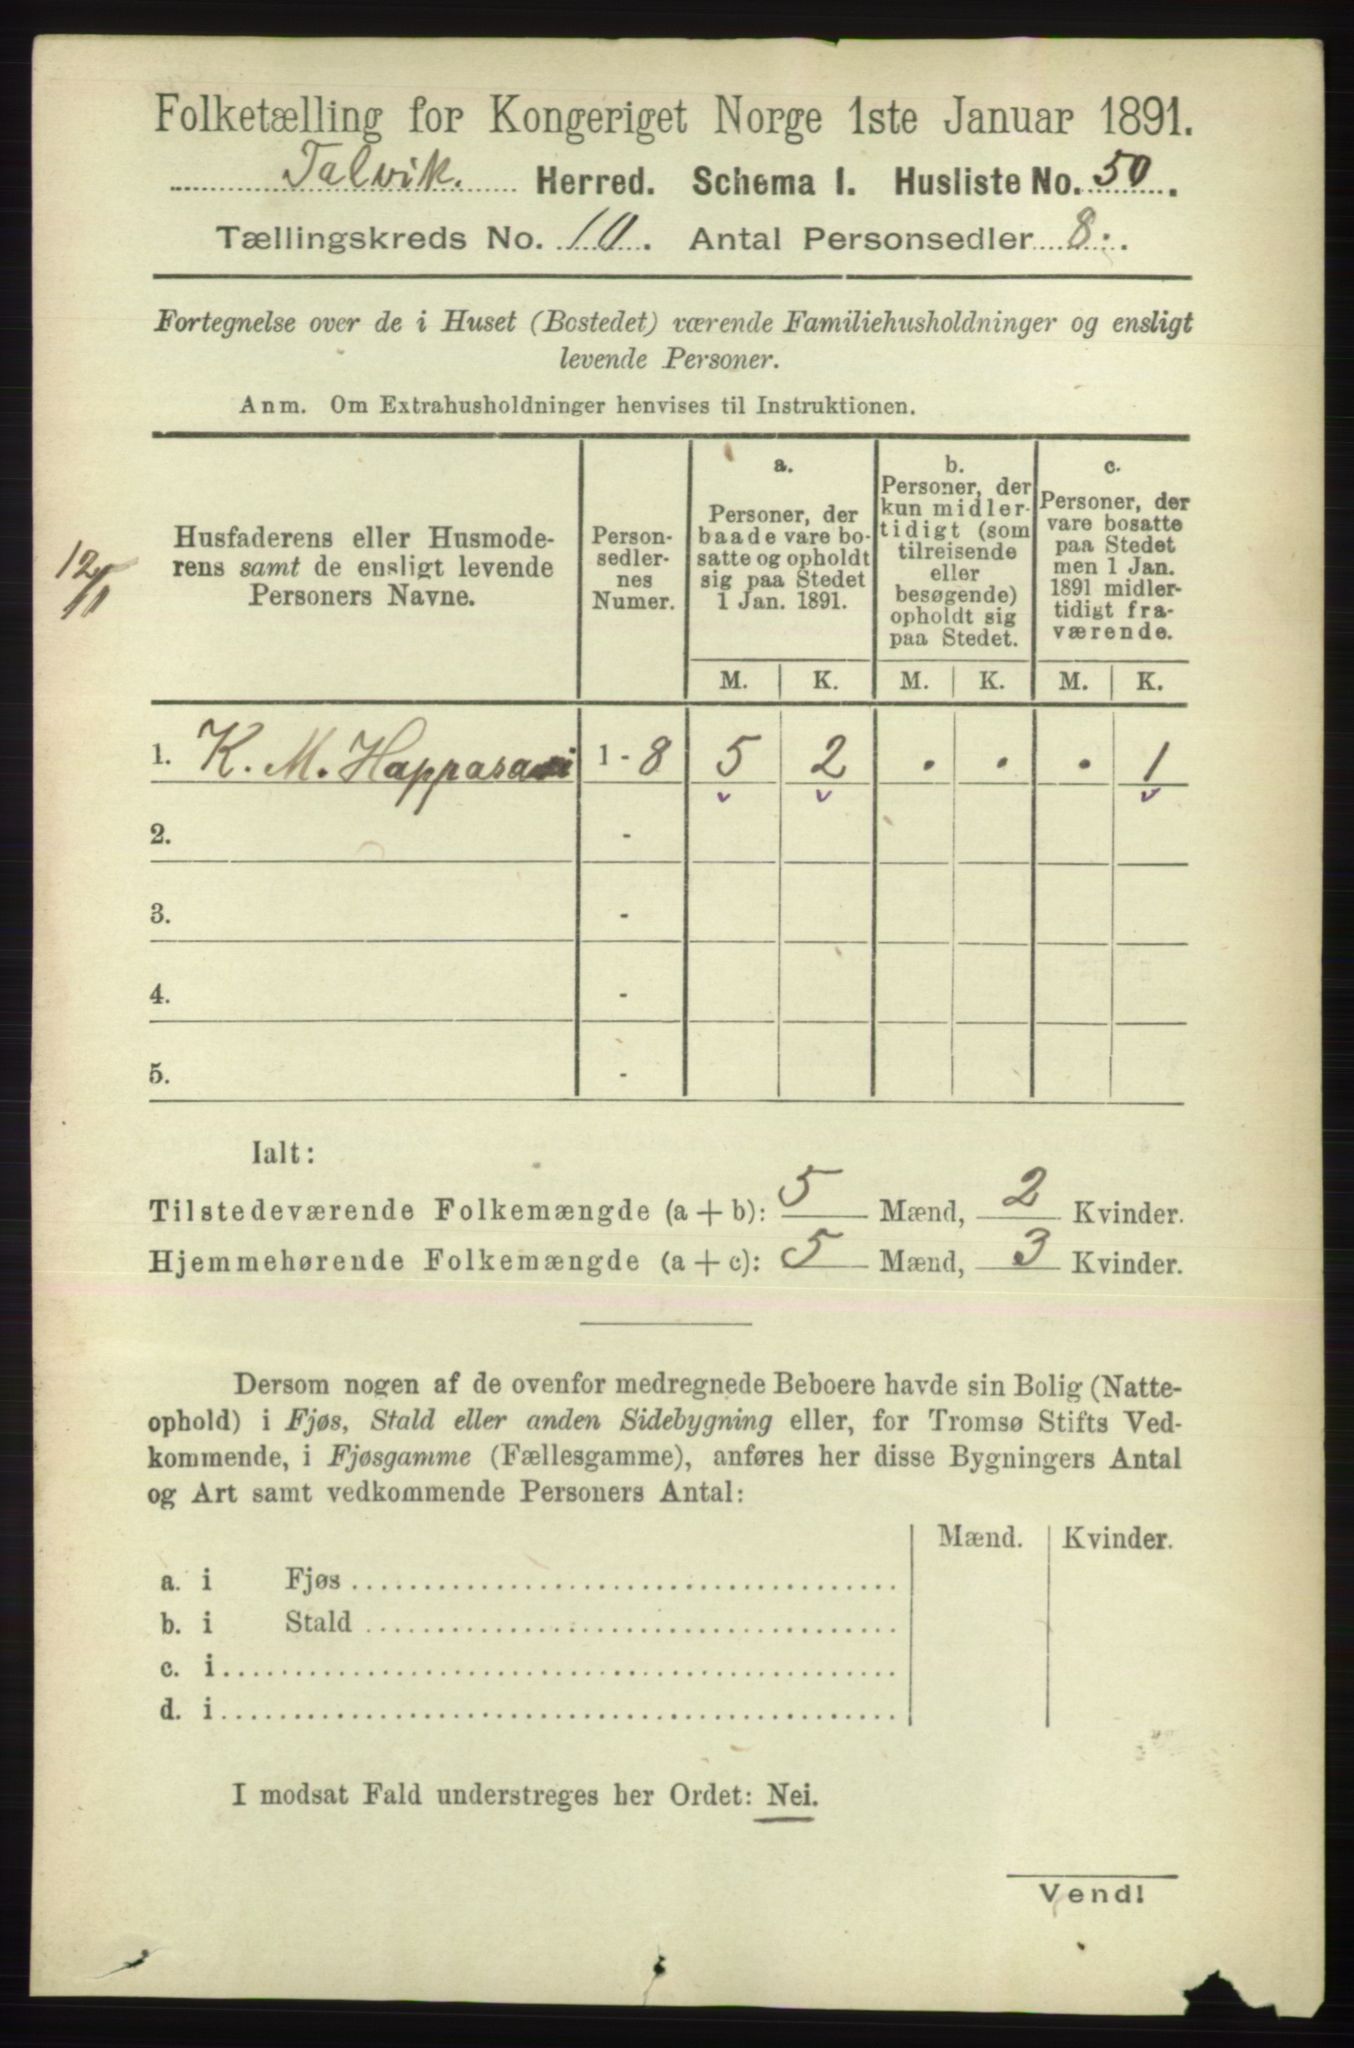 Folketælling for Kongeriget Norge 1ste Januar 1891.
Talvik. Herred. Schema I. Husliste No. 50.
Tællingskreds No. 10. Antal Personsedler 8.
Fortegnelse over de i Huset (Bostedet) værende Familiehusholdninger og ensligt
levende Personer.
Anm. Om Extrahusholdninger henvises til Instruktionen.
Husfaderens eller Husmode-
rens samt de ensligt levende
Personers Navne.
Person-
sedler-
nes
Numer.
a.
Personer, der
baade vare bo-
satte og opholdt
sig paa Stedet
1 Jan. 1891.
b.
Personer, der
kun midler-
tidigt (som
tilreisende
eller
besøgende)
opholdt sig
paa Stedet.
c.
Personer, der
vare bosatte
paa Stedet
men 1 Jan.
1891 midler-
tidigt fra-
værende.
M. K. M. K. M. K.
1. K. M. Happasari 1 - 8 5 2 . . . 1
2. -
3. -
4. -
5. -
Ialt:
Tilstedeværende Folkemængde (a + b): 5 Mænd, 2 Kvinder.
Hjemmehørende Folkemængde (a + c): 5 Mænd, 3 Kvinder.
Dersom nogen af de ovenfor medregnede Beboere havde sin Bolig (Natte-
ophold) i Fjøs, Stald eller anden Sidebygning eller, for Tromsø Stifts Ved-
kommende, i Fjøsgamme (Fællesgamme), anføres her disse Bygningers Antal
og Art samt vedkommende Personers Antal:
Mænd. Kvinder.
a. i Fjøs
b. i Stald
c. i
d. i
I modsat Fald understreges her Ordet: Nei.
Vend!